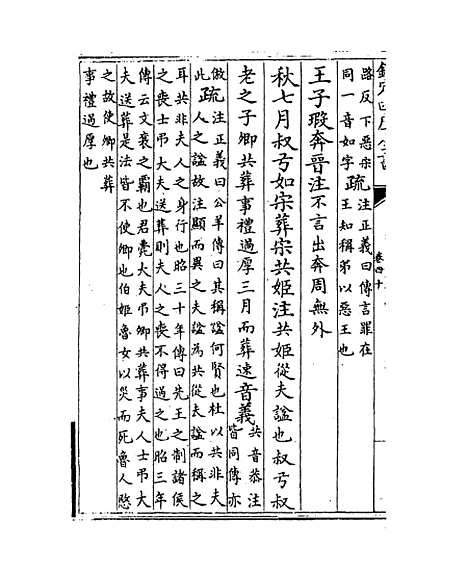 欽定四庫全書
卷四十
路反下惡宋
同一音如字疏注正義曰傳言罪在
王知稱弟以惡王也
王子瑕奔晉注不言出奔周無外
秋七月叔弓如宋葬宋共姬注共姬從夫諡也叔弓叔
老之子卿共葬事禮過厚三月而葬速音義共音恭注
皆同傳亦
倣此疏注正義曰公羊傳曰其稱諡何賢也杜以共非夫
人之諡故注顯而異之夫諡為共從夫諡而稱之
耳共非夫人之身行也昭三十年傳曰先王之制諸侯
之喪士弔大夫送葬則夫人之喪不得過之也昭三年
傳云文襄之霸也君薨大夫弔卿共葬事夫人士弔大
夫送葬是法皆不使卿也伯姬魯女以災而死魯人愍
之故使卿共葬
事禮過厚也